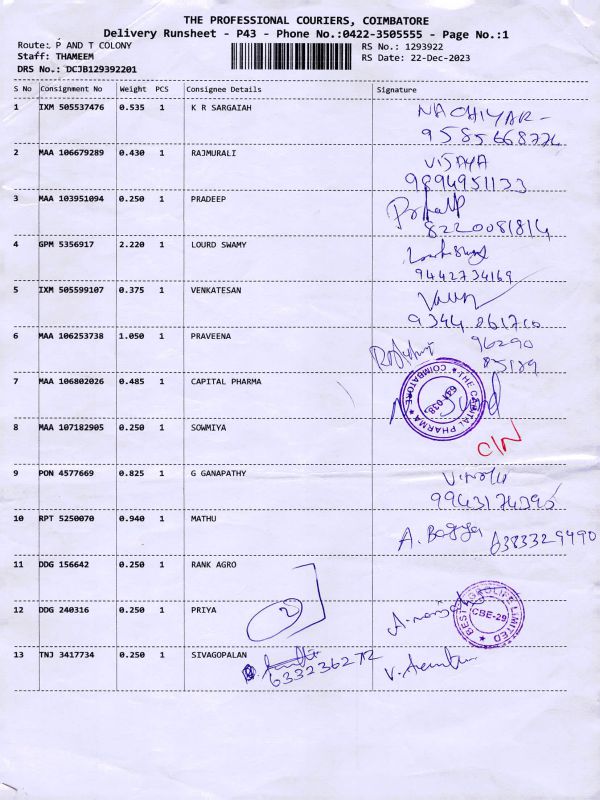 THE PROFESSIONAL COURIERS, COIMBATORE
Delivery Runsheet - P43 - Phone No.:0422-3505555 - Page No.:1
Route: P AND T COLONY
RS No.: 1293922
Staff: THAMEEM
RS Date: 22-Dec-2023
DRS No.: DCJB129392201
S No Consignment No Weight PCS Consignee Details Signature
1 IXM 505537476 0.535 1 K R SARGAIAH NACHIYAR -
9585668774
2 MAA 106679289 0.430 1 RAJMURALI VIJAYA
9894951133
3 MAA 103951094 0.250 1 PRADEEP
8220081814
4 GPM 5356917 2.220 1 LOURD SWAMY
9442734169
5 IXM 505599107 0.375 1 VENKATESAN
9344861710
6 MAA 106253738 1.050 1 PRAVEENA 96290
85189
7 MAA 106802026 0.485 1 CAPITAL PHARMA
THE CAPITAL PHARMA COIMBATORE
8 MAA 107182905 0.250 1 SOWMIYA C/N
9 PON 4577669 0.825 1 G GANAPATHY
9943174395
10 RPT 5250070 0.940 1 MATHU A. Bagya 6383329490
11 DDG 156642 0.250 1 RANK AGRO
12 DDG 240316 0.250 1 PRIYA 2
CBE-29 LIMITED
13 TNJ 3417734 0.250 1 SIVAGOPALAN